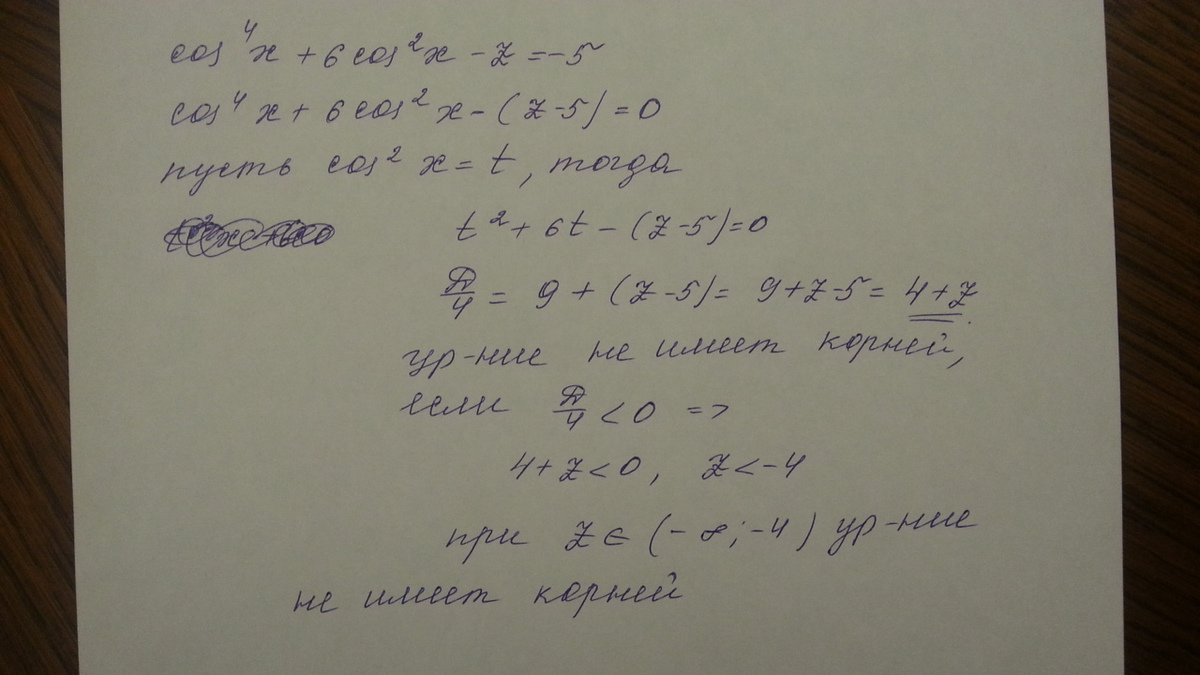 cos⁴x + 6cos²x - z = -5
cos⁴x + 6cos²x - (z-5) = 0
пусть cos²x = t, тогда
t² + 6t - (z-5) = 0
D/4 = 9 + (z-5) = 9+z-5 = 4+z.
ур-ние не имеет корней,
если D/4 < 0 =>
4+z<0, z<-4
при z ∈ (-∞; -4) ур-ние
не имеет корней